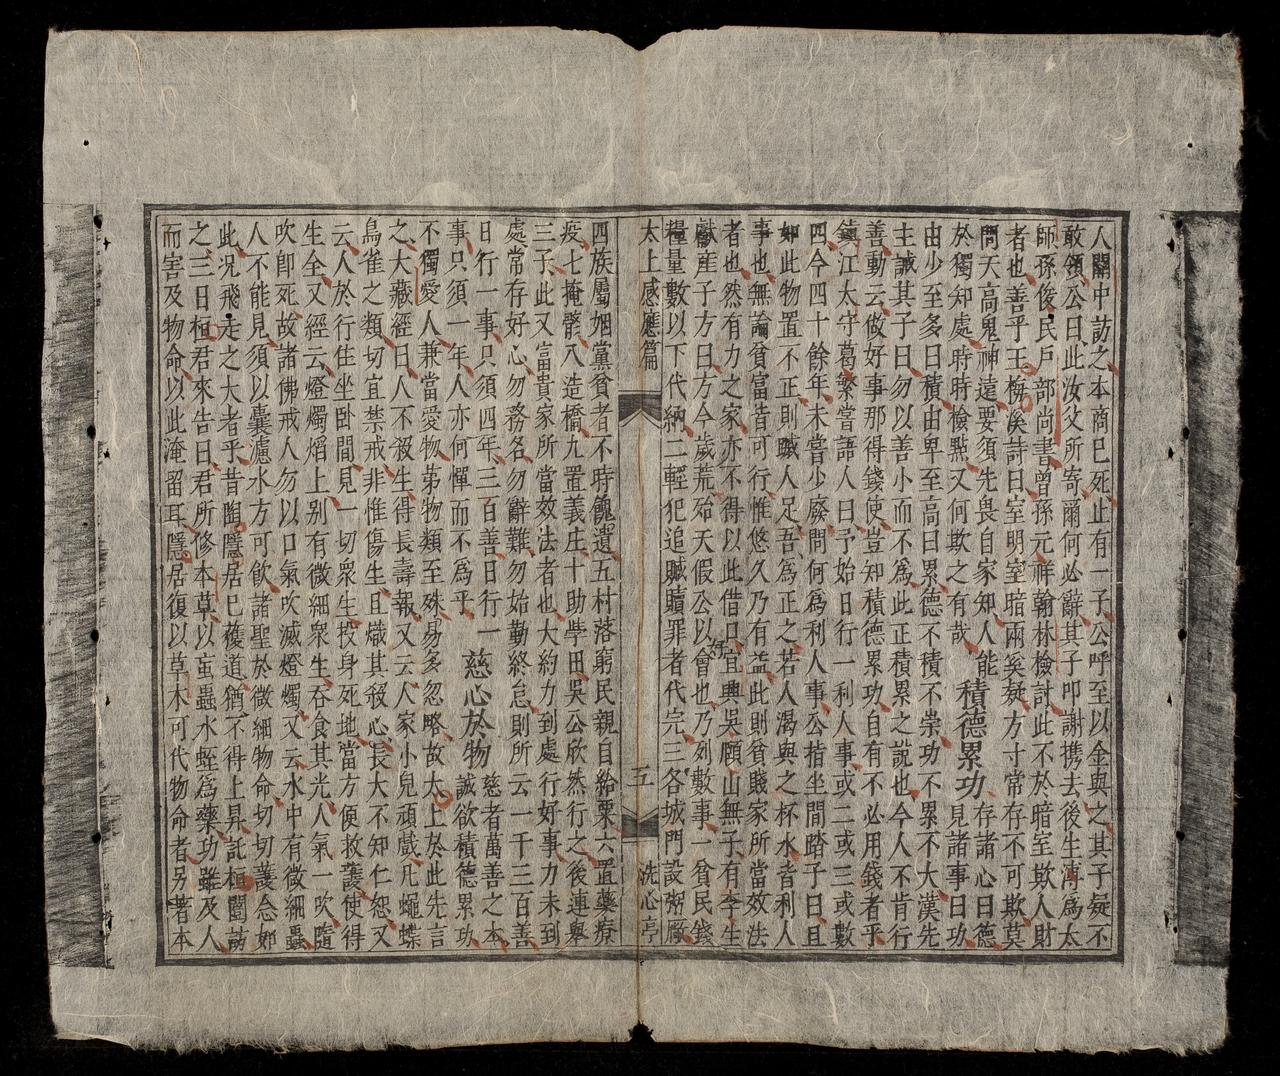 人關中訪之本商已死止有一子公呼至以金與之其子疑不
敢領公曰此汝父所寄爾何必辭其子叩謝携去後生溥為太
師孫俊民戶部尚書曾孫元祥翰林檢討此不於暗室欺人財
者也善乎王梅溪詩曰室明室暗兩奚疑方寸常存不可欺莫
問天高鬼神遠要須先畏自家知人能
於獨知處時時檢點又何欺之有哉
積德累功
存諸心曰德
見諸事曰功
由少至多曰積由卑至高曰累德不積不崇功不累不大漢先
主誡其子曰勿以善小而不為此正積累之說也今人不肯行
善動云做好事那得錢使豈知積德累功自有不必用錢者乎
鎮江太守葛繁嘗語人曰予始日行一利人事或二或三或數
四今四十餘年未嘗少廢問何為利人事公指坐間踏子曰且
如此物置不正則蹴人足吾為正之若人渴與之杯水皆利人
事也無論貧富皆可行惟悠久乃有益此則貧賤家所當效法
者也然有力之家亦不得以此借口宜興吳頤山無子有李生
獻產子方曰方今歲荒殆天假公以好會也乃列數事一貧民錢
糧量數以下代納二輕犯追贓贖罪者代完三各城門設粥厰
太上感應篇 五 洗心亭
四族屬姻黨貧者不時餽遺五村落窮民親自給粟六置藥療
疫七掩骼八造橋九置義庄十助學田吳公欣然行之後連舉
三子此又富貴家所當效法者也大約力到處行好事力未到
處常存好心勿務名勿辭難勿始勤終怠則所云一千三百善
日行一事只須四年三百善日行一
事只須一年人亦何憚而不為乎
慈心於物
慈者萬善之本
誠欲積德累功
不獨愛人兼當愛物第物類至殊易多忽略故太上於此先言
之大藏經曰人不殺生得長壽報又云人家小兒頑戲凡蠅蝶
鳥雀之類切宜禁戒非惟傷生且熾其殺心長大不知仁恕又
云人於行住坐卧間見一切衆生投身死地當方便救護使得
生全又經云燈燭熖上别有微細衆生吞食其光人氣一吹隨
吹卽死故諸佛戒人勿以口氣吹滅燈燭又云水中有微細蟲
人不能見須以囊濾水方可飲諸聖於微細物命切切護念如
此况飛走之大者乎昔陶隱居已獲道猶不得上昇託桓闓訪
之三日桓君來告曰君所修本草以䖟蟲水蛭為藥功雖及人
而害及物命以此淹留耳隱居復以草木可代物命者另著本